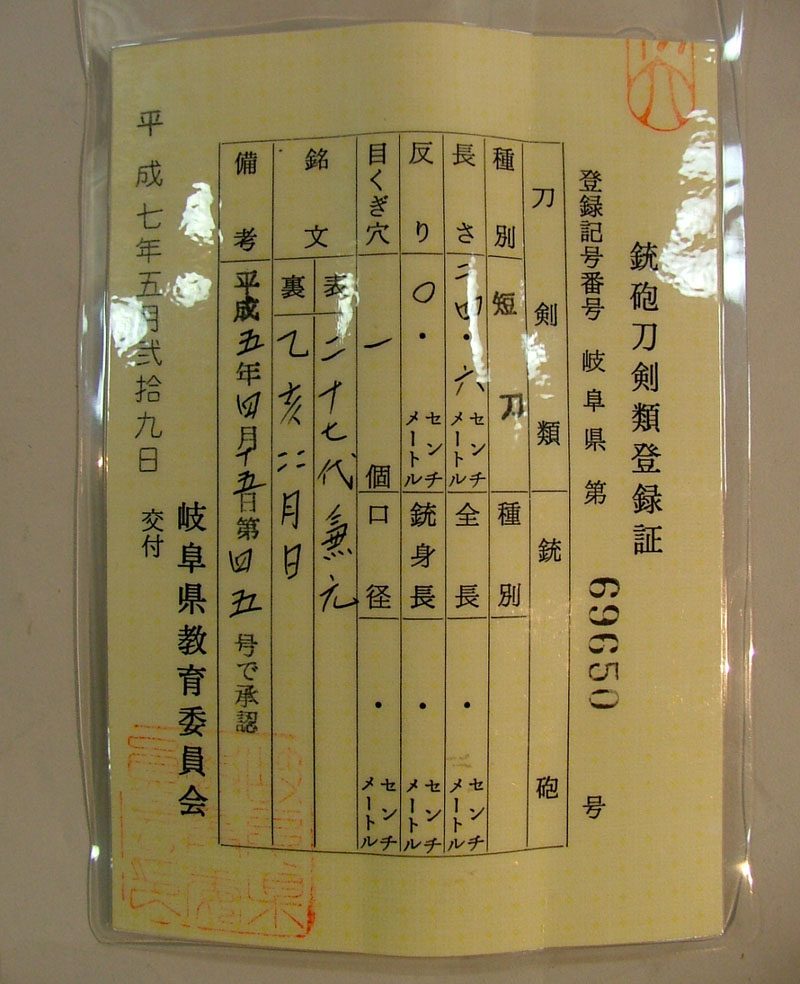 銃砲刀剣類登録証
登録記号番号 岐阜県 第 69650 号
刀剣類 銃砲
種別 短刀 種別
長さ 二四・六 センチメートル 全長 ・ センチメートル
反り 〇・ センチメートル 銃身長 ・ センチメートル
目くぎ穴 一 個 口径 ・ センチメートル
銘文 表 二十七代兼元
裏 乙亥二月日
備考 平成五年四月十五日第四五号で承認
平成七年五月弐拾九日 交付
岐阜県教育委員会